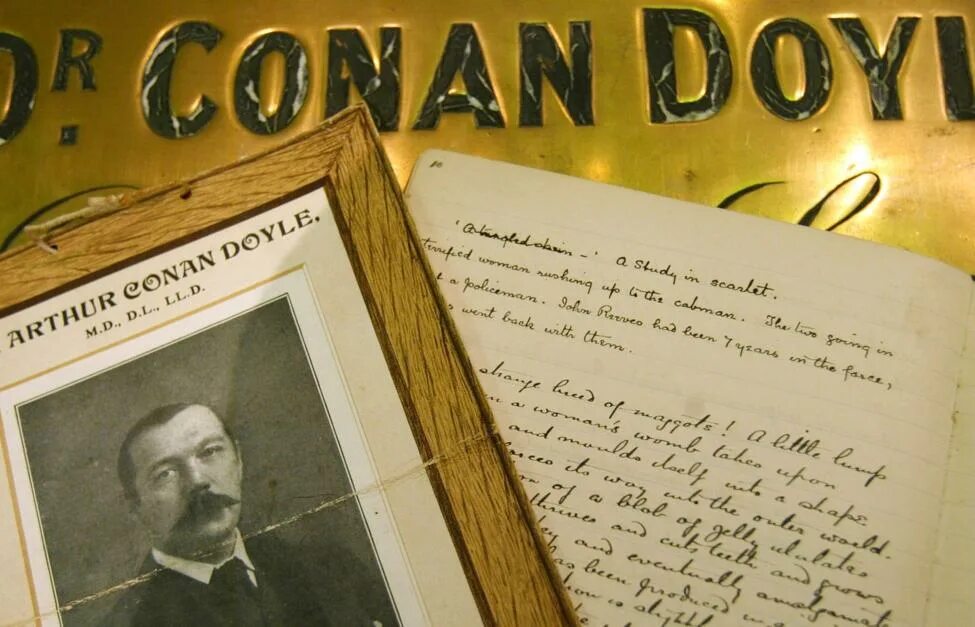 DR. CONAN DOYL
ARTHUR CONAN DOYLE,
M.D., D.L., LL.D.
'A tangled skein - ' A Study in scarlet.
terrified woman rushing up to the cabman. The two going in
a policeman. John Reeves had been 7 years in the force,
went back with them.
strange breed of maggots! A little lump
a woman's womb takes upon
and moulds itself into a shape
its way into the outer world.
of a blob of jelly ululates
thrives and cuts teeth and grows
and eventually amalgamate
been produced in
is